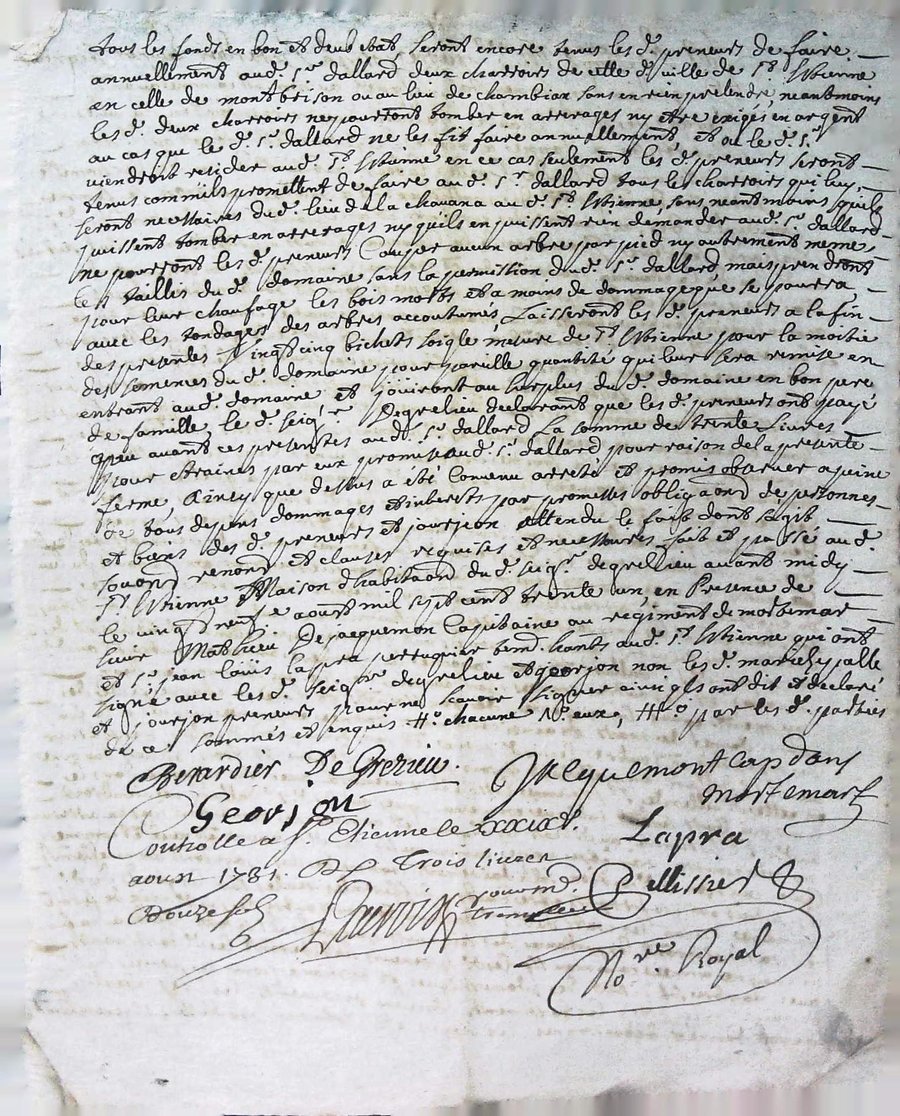 tous les fonds en bon et deub etat, seront encore tenus les d. preneurs de faire
annuellement aud. sr. dallard deux charroirs de cette d. ville de st. Etienne
en celle de montbrison ou au lieu de chambiax sans en rien pretendre, neantmoins
les d. deux charroirs ne pourront tomber en arrerages ny etre exigés en argent
au cas que le d. sr. dallard ne les fit faire annuellement, et ou le d. sr.
viendroit resider aud. st. Etienne en ce cas seulement les d. preneurs seront
tenus comm'ils promettent de faire au d. sr. dallard tous les charroirs qui luy
seront necessaires du d. lieu de la chavana au d. st. Etienne, sans neantmoins qu'ils
puissent tomber en arrerages ny qu'ils en puissent rien demander aud. sr. dallard
ne pourront les d. preneurs Couper aucun arbre par pied ny autrement meme
le taillis du d. domaine sans la permission du d. sr. dallard mais prendront
pour leur chaufage les bois morts et a moins de dommage que se pourra,
avec les tondages des arbres accoutumés, Laisseront les d. preneurs a la fin
des presentes vingt cinq bichets seigle, mesure de st. Etienne pour la moitié
des semences du d. domaine pour pareille quantité qui leur sera remise en
entrant au d. domaine et jouiront au surplus du d. domaine en bon pere
de famille, le d. seigr. Degrelieu declarant que les d. preneurs ont payé
peu avant ces presentes au d. sr. dallard La somme de trente Livres
pour etraines par eux promise au d. sr. dallard pour raison de la presente
ferme, Ainsy que dessus a été convenu arreté et promis observer a peine
de tous depens dommages et interets par promesses obligaond de personnes
et biens des d. preneurs et jourjon attendu le fait dont s'agit
soumond renond et clauses requises et necessaires, fait et passé au d.
st. Etienne Maison d'habitaond du d. seigr. degrelieu avant midy
le vingt neufe aoust mil sept cent trente un, en Presence de
Mathieu Dejacquemon Capitaine au regiment de mortemar
et sr. jean louis lapra perruquier hants. aud. st. Etienne qui ont
signé avec les d. seigr. degrelieu et georjon non les d.
et jourjon preneurs pour ne scavoir signer ainsy qls ont dit et declaré
de ce sommés et enquis par les d. parties
Berardier De Grezieu.
Jacquemont cap dans
mortemart
Georjon
Controllé a st. Etienne le xxix e.
Lapra
aoust 1731. R. Trois livres
Pellissier
Douze sols
Nore. Royal